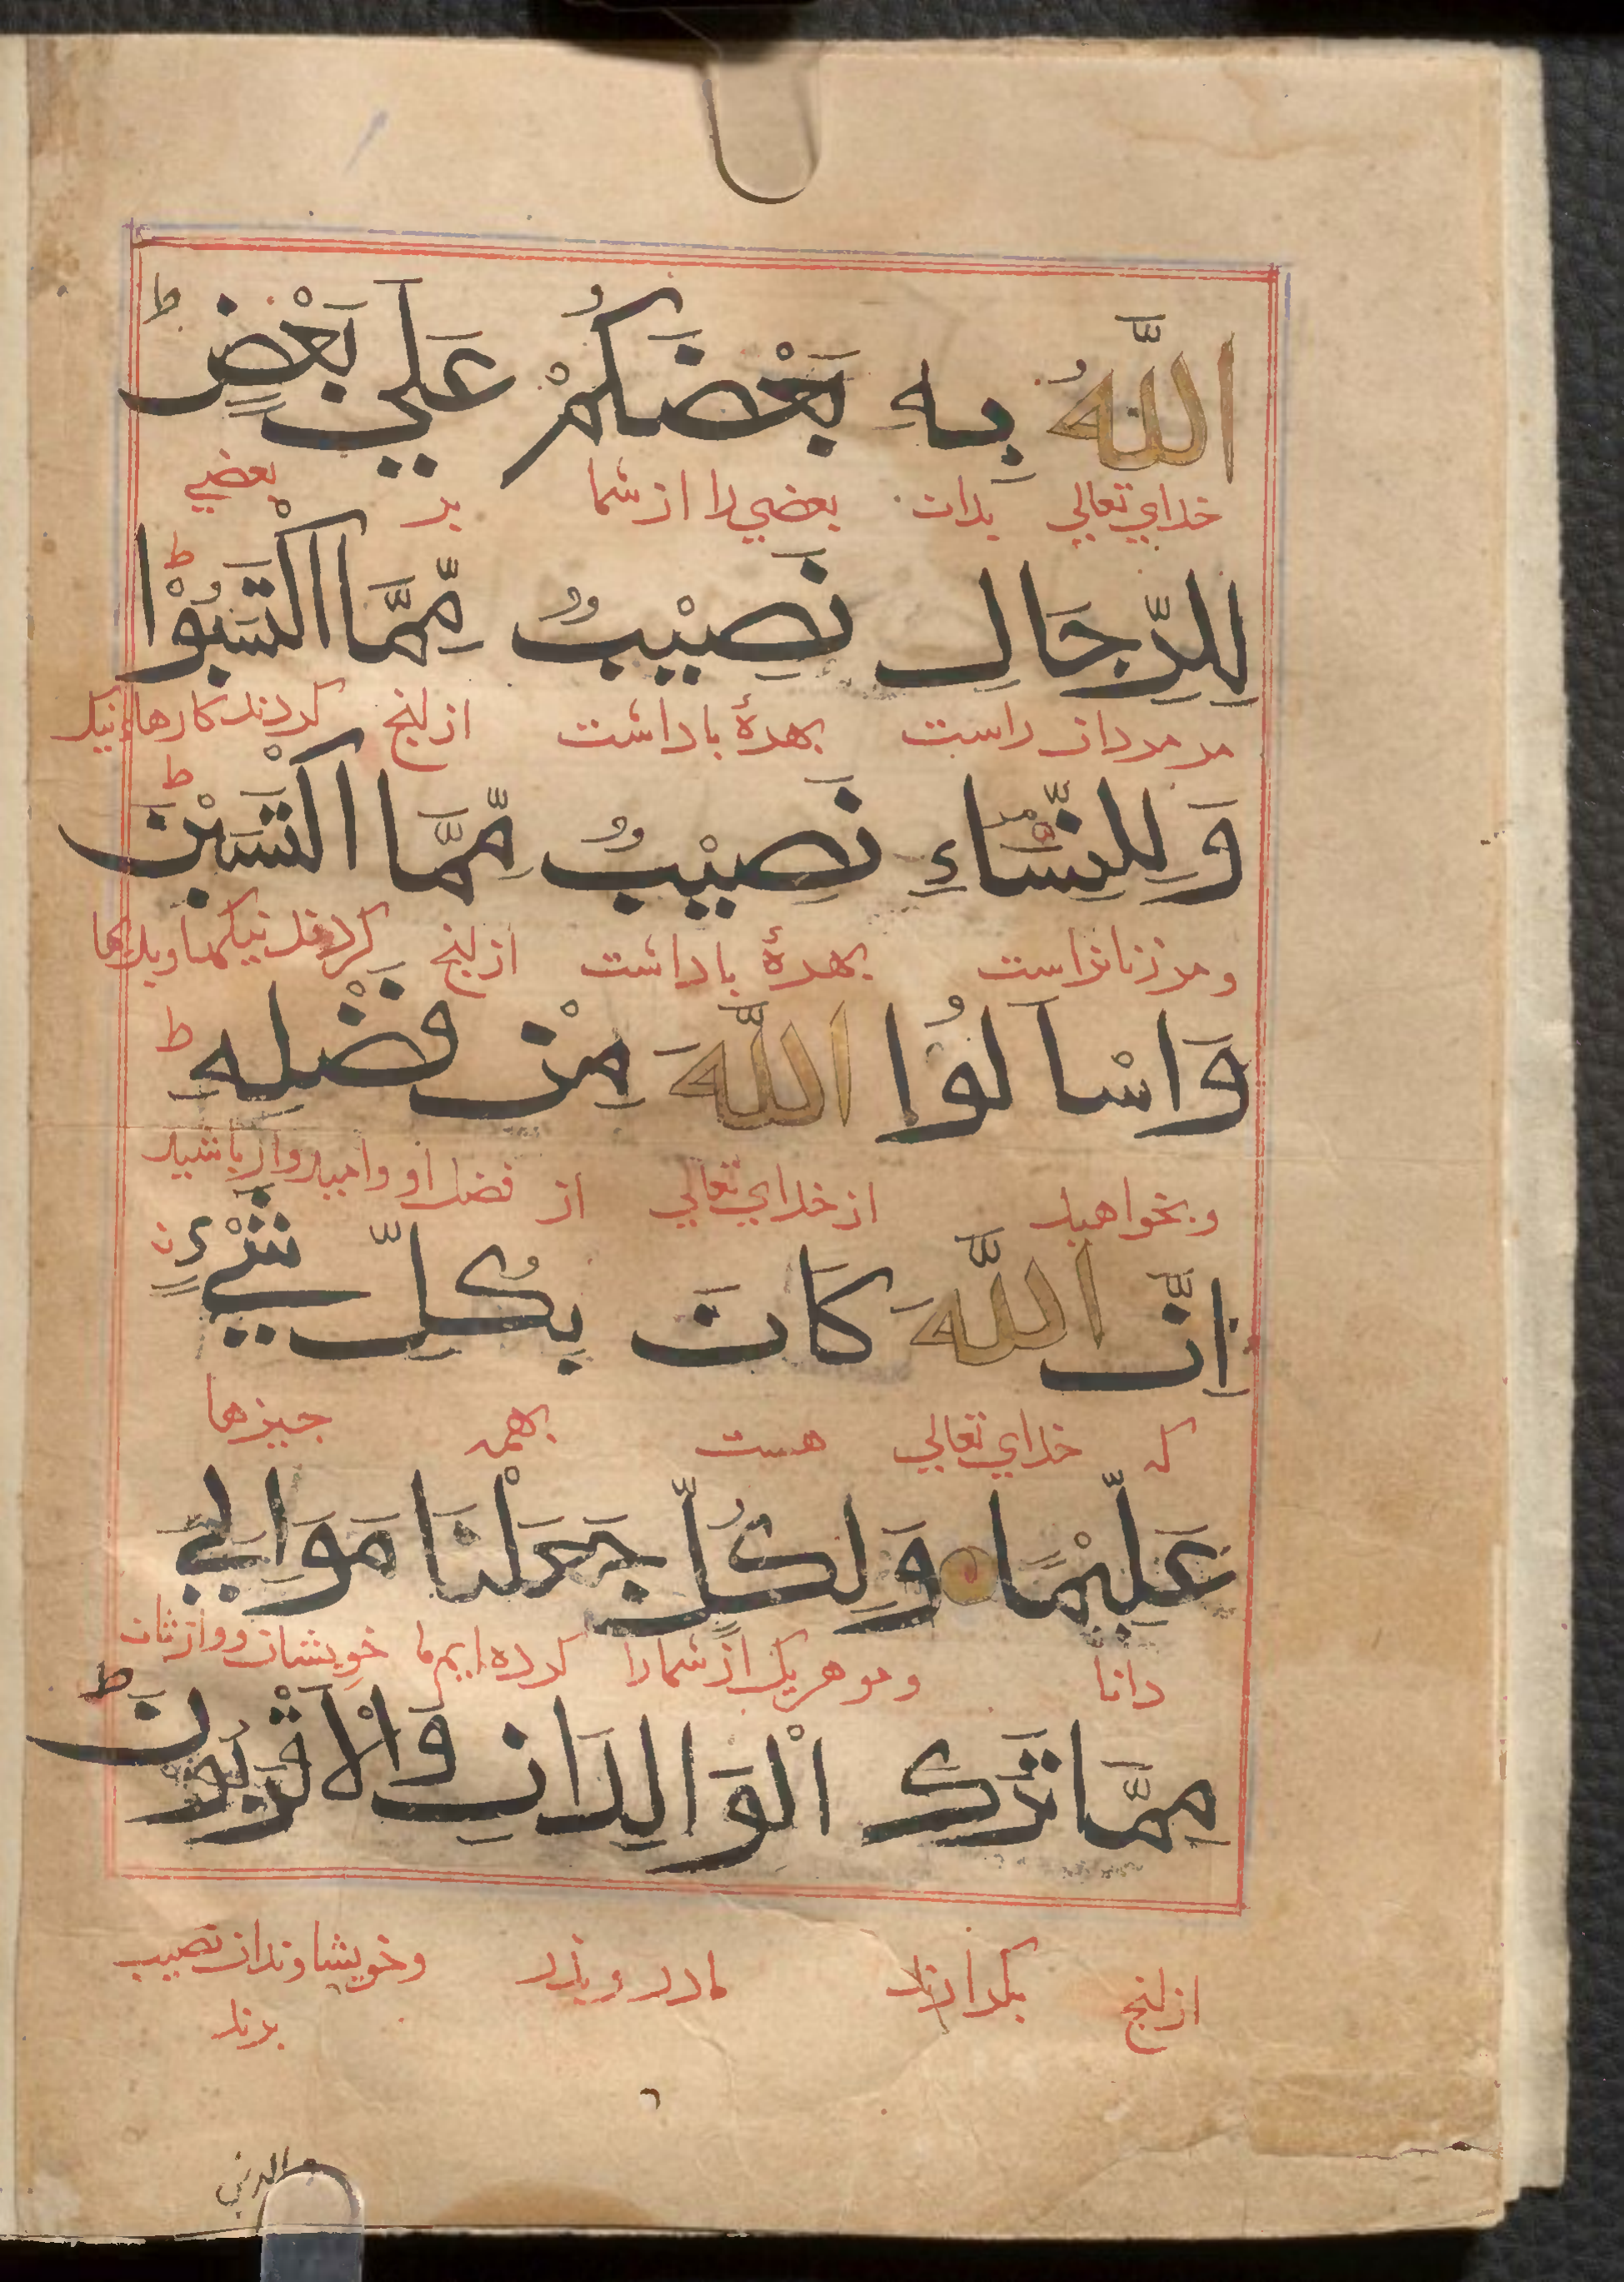 اللَّهُ بِهِ بَعْضَكُمْ عَلَي بَعْضٍ ط
خدای تعالی بدان بعضی را از شما بر بعضی
لِلرِّجَالِ نَصِيْبٌ مِّمَّا اكْتَسَبُوْا ط
مر مردان راست بهرهٔ باداشت ازانج کردند کارهاء نیک
وَلِلنِّسَاءِ نَصِيْبٌ مِّمَّا اكْتَسَبْنَ ط
و مر زنانراست بهرهٔ باداشت ازانج کردند نیکیها
وَاسْأَلُوا اللَّهَ مِنْ فَضْلِهِ ط
و بخواهید از خدای تعالی از فضل او و امیدوار باشید
اِنَّ اللَّهَ كَانَ بِكُلِّ شَيْءٍ
که خدای تعالی هست بهمه جیزها
عَلِيْمًا وَلِكُلٍّ جَعَلْنَا مَوَالِيَ
دانا و مر هر یک از شمارا کرده ایم ما خویشان و وارثان
مِمَّا تَرَكَ الْوَالِدَانِ وَالْاَقْرَبُوْنَ ط
ازانج بگذارند مادر و پذر و خویشاوندان نصیب
برند
والذين